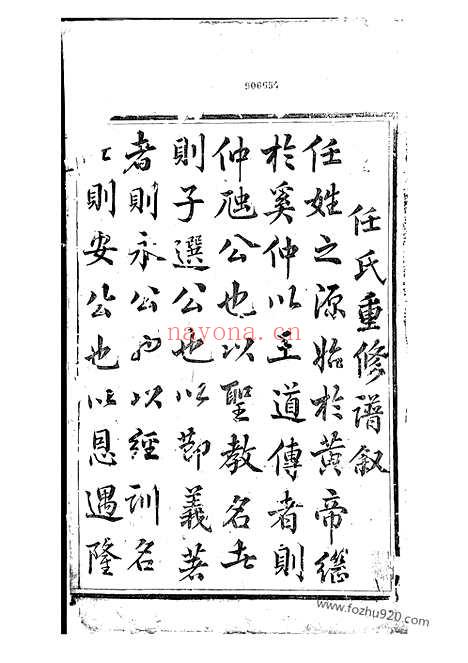 906654
任氏重修譜叙
任姓之源始於黃帝繼
於奚仲以王道傳者則
仲虺公也以聖教名世
則子選公也以節義著
者則永公也以經訓名
則安公也以恩遇隆
nayona.cn
www.fozhu920.com